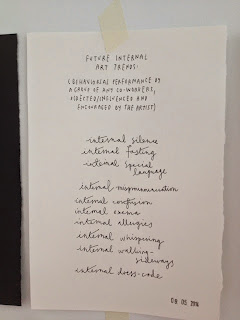 FUTURE INTERNAL
ART TRENDS:
(BEHAVIORAL PERFORMANCE BY
A GROUP OF ANY CO-WORKERS,
DIRECTED/INFLUENCED AND
ENCOURAGED BY THE ARTIST)
internal silence
internal fasting
internal special
language
internal mispronunciation
internal confusion
internal
internal allergies
internal whispering
internal walking-
sideways
internal dress-code